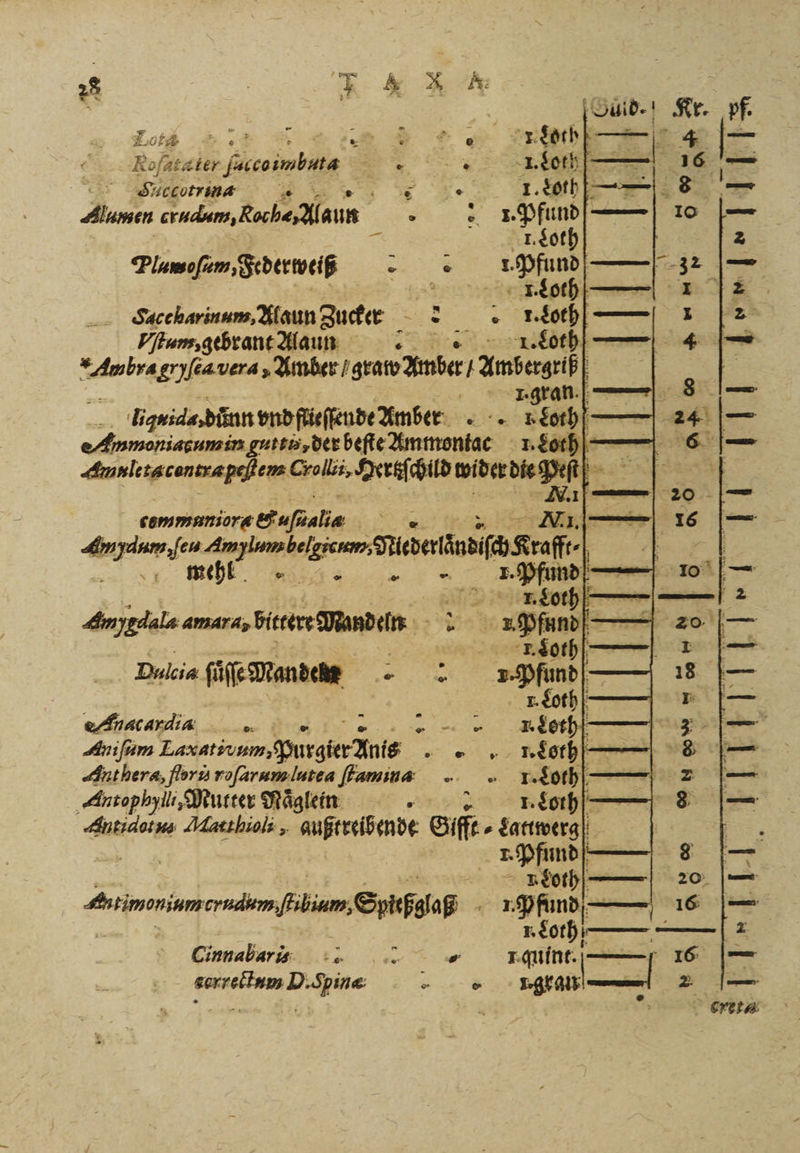 28 TAXA.
Guld. Kr. pf.
Lota . . . . . 1.Loth — 4 —
Rosata ter succo imbuta . . 1.Loth — 16 —
Succotrina . . . . 1.Loth — 8 —
Alumen crudum, Rochæ, Alaun . . 1.Pfund — 10 —
1.Loth 2
Plumosum, Federweiß . . 1.Pfund — 32 —
1.Loth — 1 2
Saccharinum, Alaun Zucker . . 1.Loth — 1 2
Vstum, gebrant Alaun . . 1.Loth — 4 —
*Ambra grysea vera, Amber / graw Amber / Ambergriß
1.gran. — 8 —
liquida, dünn vnd fliessende Amber . . 1.Loth — 24 —
Ammoniacum in guttis, der beste Ammoniac 1.Loth — 6 —
Amuleta contra pestem Crollii, Hertzschild wider die Pest
N.1 — 20 —
communiora & usualia . . N.1. — 16 —
Amydum, seu Amylum belgicum, Niederländisch Krafft-
mehl . . . . 1.Pfund — 10 —
1.Loth — — 2
Amygdala amara, bittere Mandeln . 1.Pfund — 20 —
1.Loth — 1 —
Dulcia süsse Mandeln . . 1.Pfund — 18 —
1.Loth — 1 —
Anacardia . . . . . 1.Loth — 3 —
Anisum Laxativum, Purgier Aniß . . . 1.Loth — 8 —
Anthera, floris rosarum lutea stamina . . 1.Loth — 2 —
Antophylli, Mutter Näglein . . 1.Loth — 8 —
Antidotus Matthioli, außtreibende Gifft-Lattwerg
1.Pfund — 8 —
1.Loth — 20 —
Antimonium crudum, stibium, Spießglaß 1.Pfund — 16 —
1.Loth — — 2
Cinnabaris . . . 1 quint. — 16 —
correctum D. Spinæ . . 1.gran — 2 —
creta